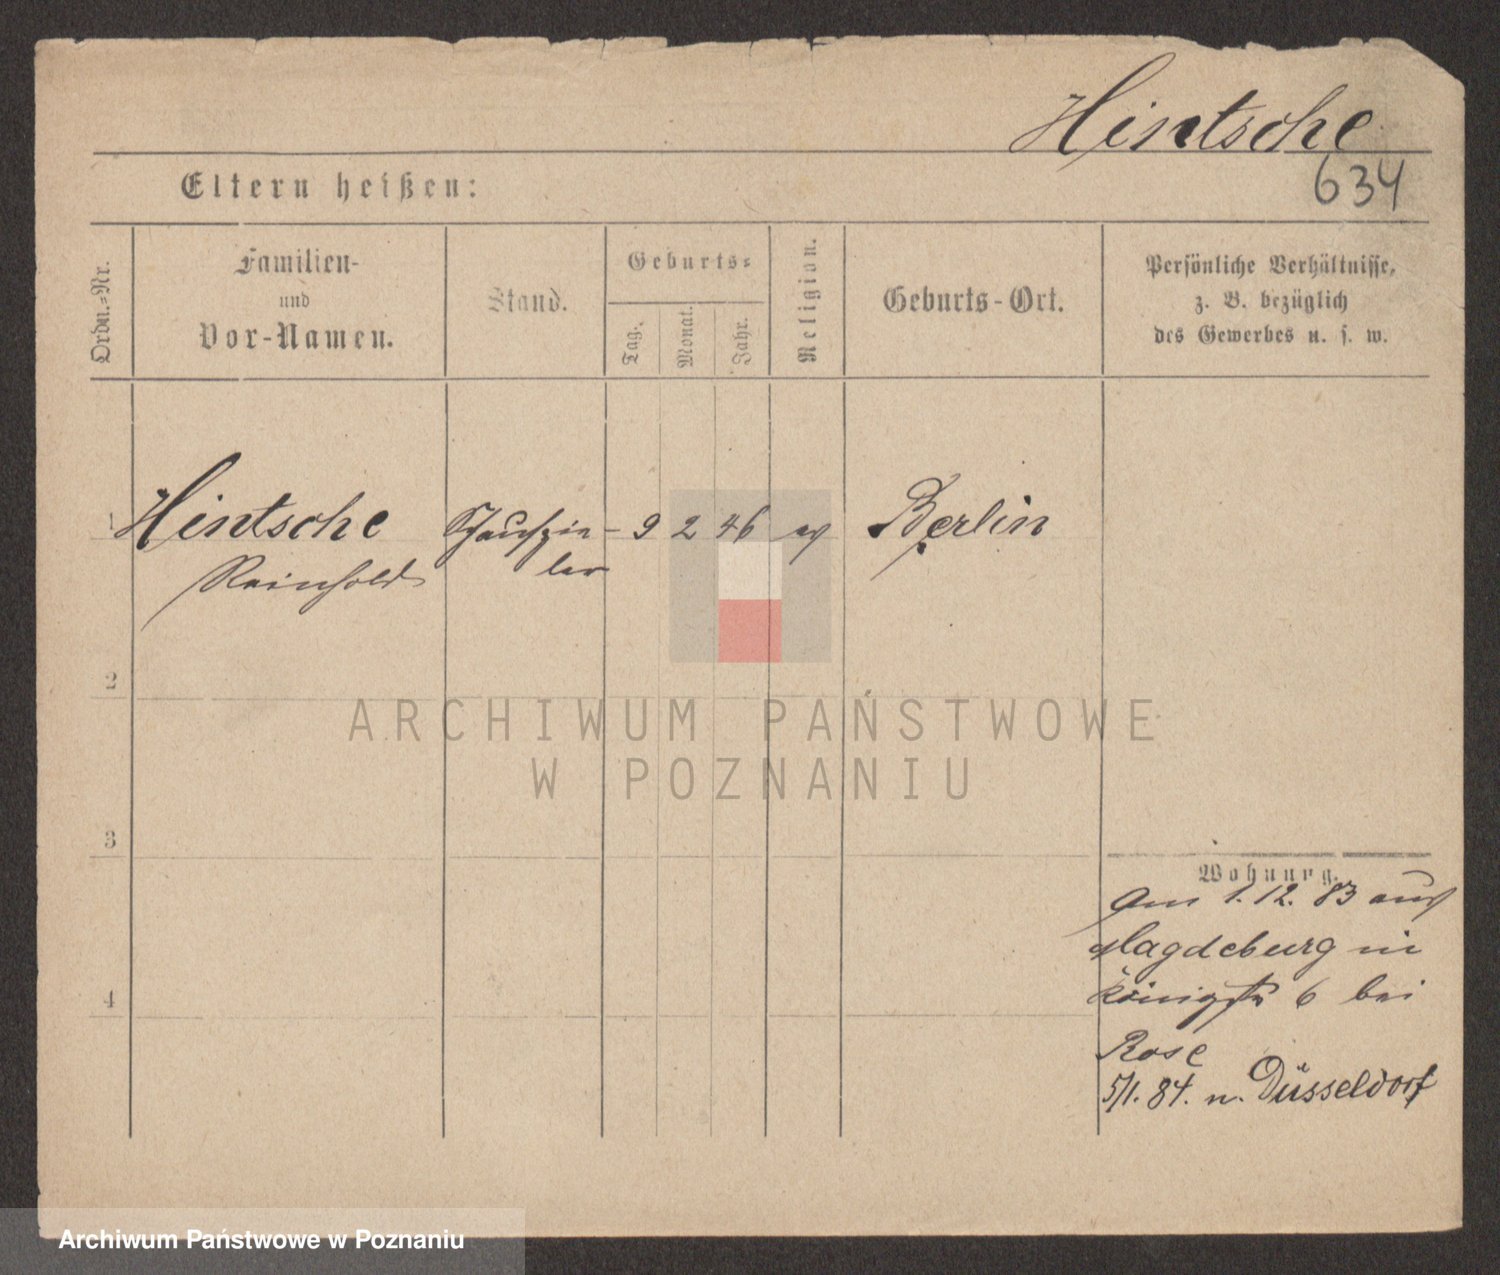 Hintsche
634
Eltern heißen:
Ordn.=Nr.
Familien-
und
Vor-Namen.
Stand.
Geburts=
Tag.
Monat.
Jahr.
Religion.
Geburts-Ort.
Persönliche Verhältnisse,
z. B. bezüglich
des Gewerbes u. s. w.
1 Hintsche Schauspie- 9 2 46 ev Berlin
Reinhold ler
2
ARCHIWUM PAŃSTWOWE
W POZNANIU
3
Wohnung.
am 1.12.83 aus
Magdeburg in
4
Königstr 6 bei
Rose
5/1. 84. n. Düsseldorf
Archiwum Państwowe w Poznaniu